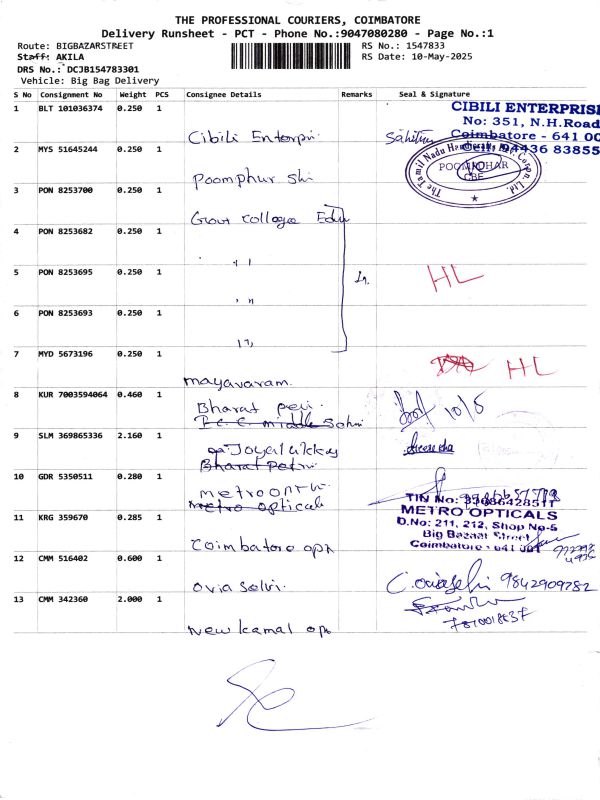 THE PROFESSIONAL COURIERS, COIMBATORE
Delivery Runsheet - PCT - Phone No.:9047080280 - Page No.:1
Route: BIGBAZARSTREET
RS No.: 1547833
Staff: AKILA
RS Date: 10-May-2025
DRS No.: DCJB154783301
Vehicle: Big Bag Delivery
S No Consignment No Weight PCS Consignee Details Remarks Seal & Signature
1 BLT 101036374 0.250 1
Cibili Enterpri.
CIBILI ENTERPRIS
No: 351, N.H.Road
Coimbatore - 641 00
Cell: 94436 83855
2 MYS 51645244 0.250 1
Poomphur Shi
POOMPUHAR
CBE
3 PON 8253700 0.250 1
Govt college Edu
4 PON 8253682 0.250 1
" "
5 PON 8253695 0.250 1
" "
HL
6 PON 8253693 0.250 1
7 MYD 5673196 0.250 1
mayavaram.
HL
8 KUR 7003594064 0.460 1
Bharat petri.
10/5
9 SLM 369865336 2.160 1
Joyalukkas
Bharat Petri.
10 GDR 5350511 0.280 1
metro opti
Metro opticals
TIN No: 33086428511
METRO OPTICALS
D.No: 211, 212, Shop No-5
Big Bazaar Street
Coimbatore - 641 001
11 KRG 359670 0.285 1
Coimbatore opti
12 CMM 516402 0.600 1
Ovia Selvi.
C. oviaselvi 9842909282
13 CMM 342360 2.000 1
New kamal opti